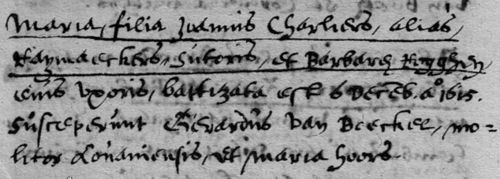 Maria, filia Joannis Charliers, alias,
Raymaeckers, sutoris, et Barbarę Rogghen,
eius uxoris, battizata est 6 Deceb. aº 1615.
Susceperunt Gerardus van Beeckel, mo-
litor Lovaniensis, et Maria Hoors.